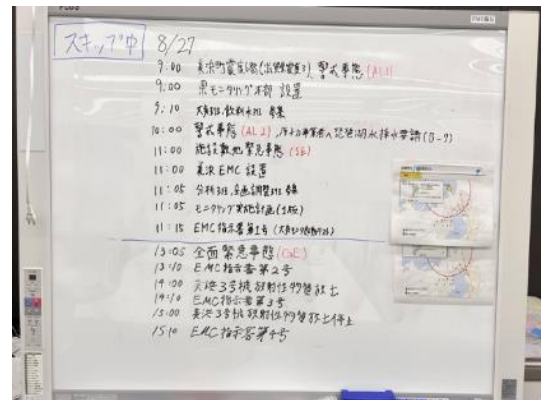 PLUS
スキップ中 8/27
9:00 美浜町震度6弱 警戒事態(AL)
9:00 県モニタリング本部 設置
9:10 大気班、飲料水班 参集
10:00 警戒事態(AL2)
11:00 施設敷地緊急事態(SE)
11:00 美浜EMC設置
11:05 分析班、企画調整班 参集
11:05 モニタリング実施計画(1版)
11:15 EMC指示書第1号
13:05 全面緊急事態(GE)
13:10 EMC指示書第2号
14:00 美浜3号機放射性物質放出
14:10 EMC指示書第3号
15:00 美浜3号機放射性物質放出停止
15:10 EMC指示書第4号